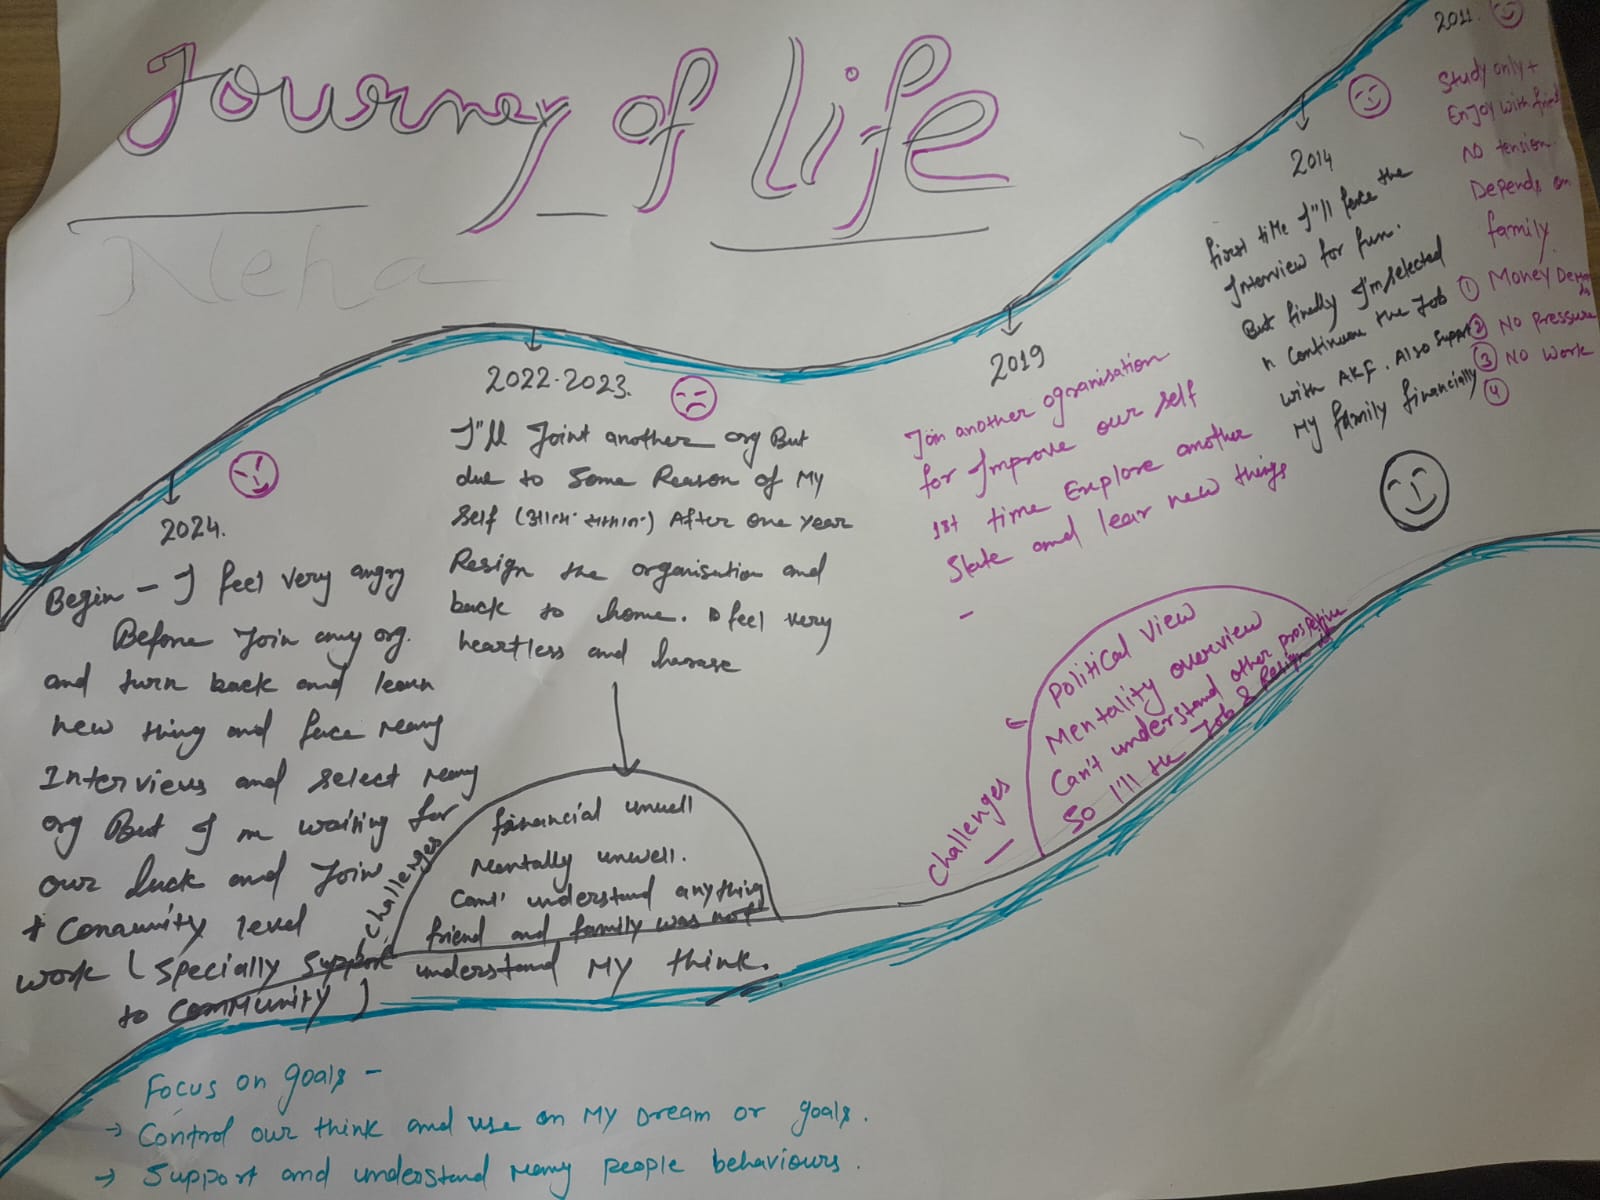 Journey of life
Neha
2011.
Study only +
Enjoy with friend
NO tension.
Depends on
family.
① Money Depends
② No Pressure
③ No Work
④
2014
first time I"ll face the
Interview for fun.
But finally I'm selected
n Continue the Job
with AKF. Also Support
My family financially
2019
Join another ogranisation
for Improve our self
1st time Explore another
State and lear new things
-
Challenges
Political View
Mentality overview
Can't understand other prospetive
So I'll the Job & Resign
2022-2023.
I"ll Joint another org But
due to Some Reason of My
Self (आत्म सम्मान) After one year
Resign the organisation and
back to home. feel very
heartless and harase
Challenges
financial unwell
Mentally unwell.
Cant' understand anything
friend and family was not
understand My think.
2024.
Begin - I feel very angry
Before Join any org.
and turn back and learn
new thing and face many
Interviews and select many
org But I m waiting for
our luck and Join
+ Conmunity level
work (Specially Support
to COMMUNITY)
Focus on goals -
→ Control our think and use on My Dream or goals.
→ Support and understand many people behaviours.